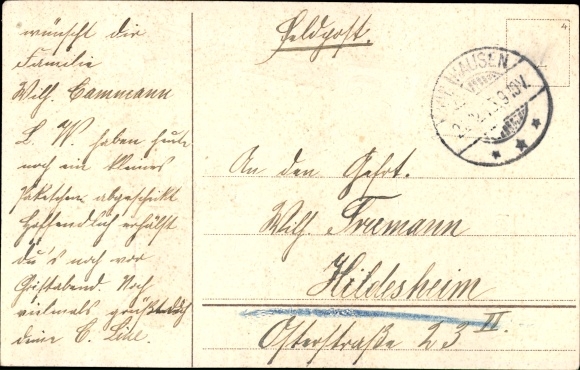 wünscht dir
Familie
Wilh. Cammann
L. W. haben heute
noch ein kleines
Paketchen abgeschickt
hoffendlich erhälst
du's noch vor
Christabend. Noch
vielmals grüßt dich
deine E.
Feldpost.
HAUSEN
An den Gefrt.
Wilh. Tremann
Hildesheim
Osterstraße 23 II.